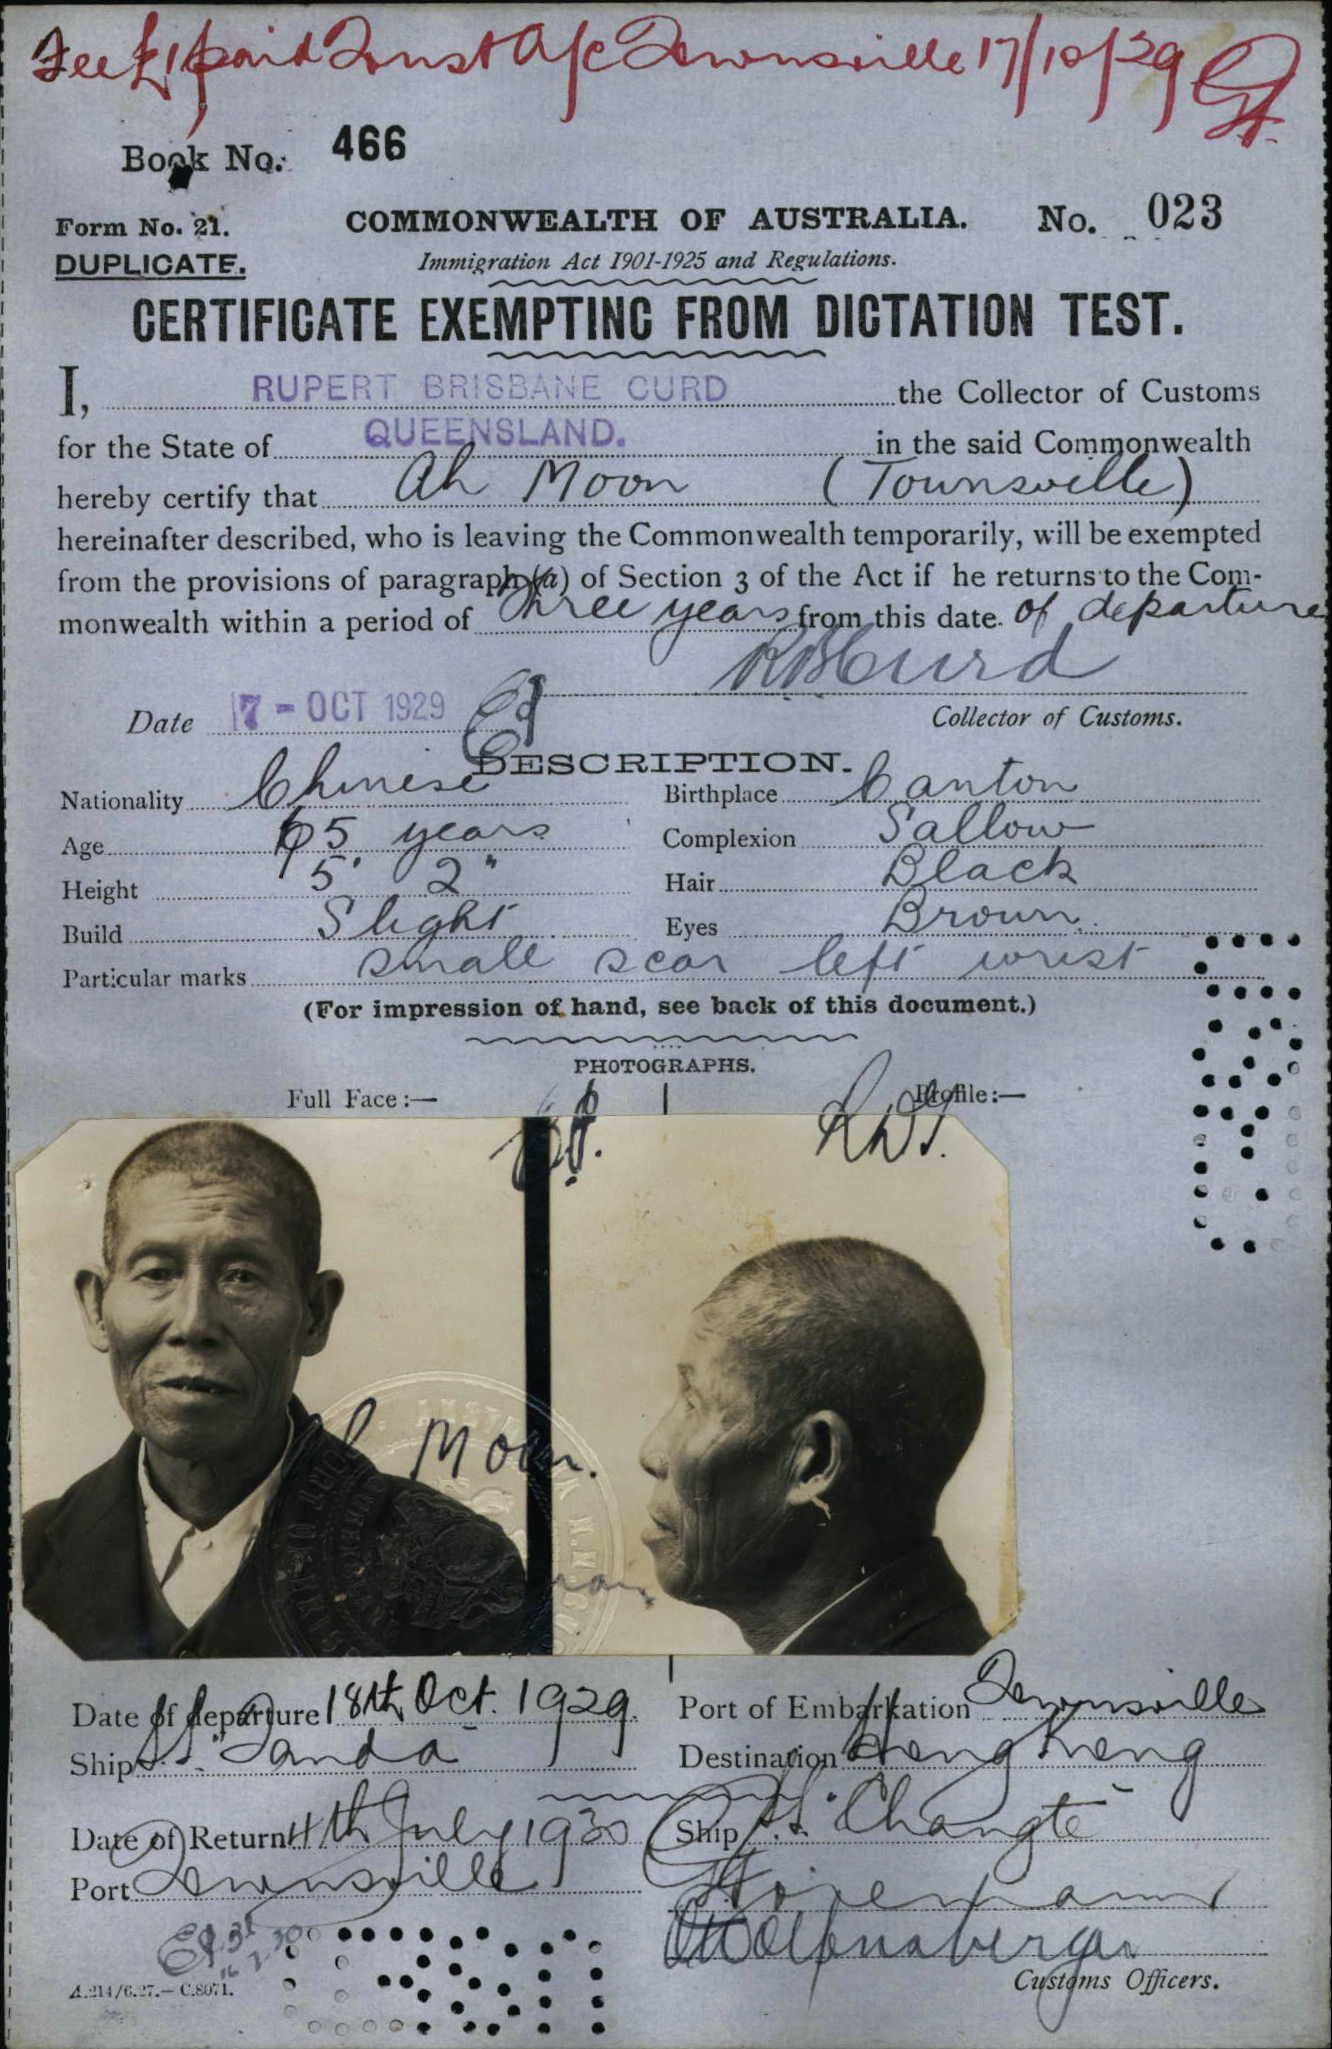 Fee £1 paid Trust A/c Townsville 17/10/29
Book No. 466
Form No. 21. COMMONWEALTH OF AUSTRALIA. No. 023
DUPLICATE. Immigration Act 1901-1925 and Regulations.
CERTIFICATE EXEMPTING FROM DICTATION TEST.
I, RUPERT BRISBANE CURD the Collector of Customs
for the State of QUEENSLAND. in the said Commonwealth
hereby certify that Ah Moon (Townsville)
hereinafter described, who is leaving the Commonwealth temporarily, will be exempted
from the provisions of paragraph (a) of Section 3 of the Act if he returns to the Com-
monwealth within a period of three years from this date of departure
RBCurd
Date 17 - OCT 1929 Collector of Customs.
DESCRIPTION.
Nationality Chinese Birthplace Canton
Age 65 years Complexion Sallow
Height 5' 2" Hair Black
Build Slight Eyes Brown.
Particular marks small scar left wrist
(For impression of hand, see back of this document.)
PHOTOGRAPHS.
Full Face :— Profile :—
Moon.
Date of departure 18th Oct. 1929. Port of Embarkation Townsville
Ship S.S. Tanda Destination Hong Kong
Date of Return 4th July 1930 Ship S.S. Changte
Port Townsville
A.214/6.27.— C.8071. Customs Officers.